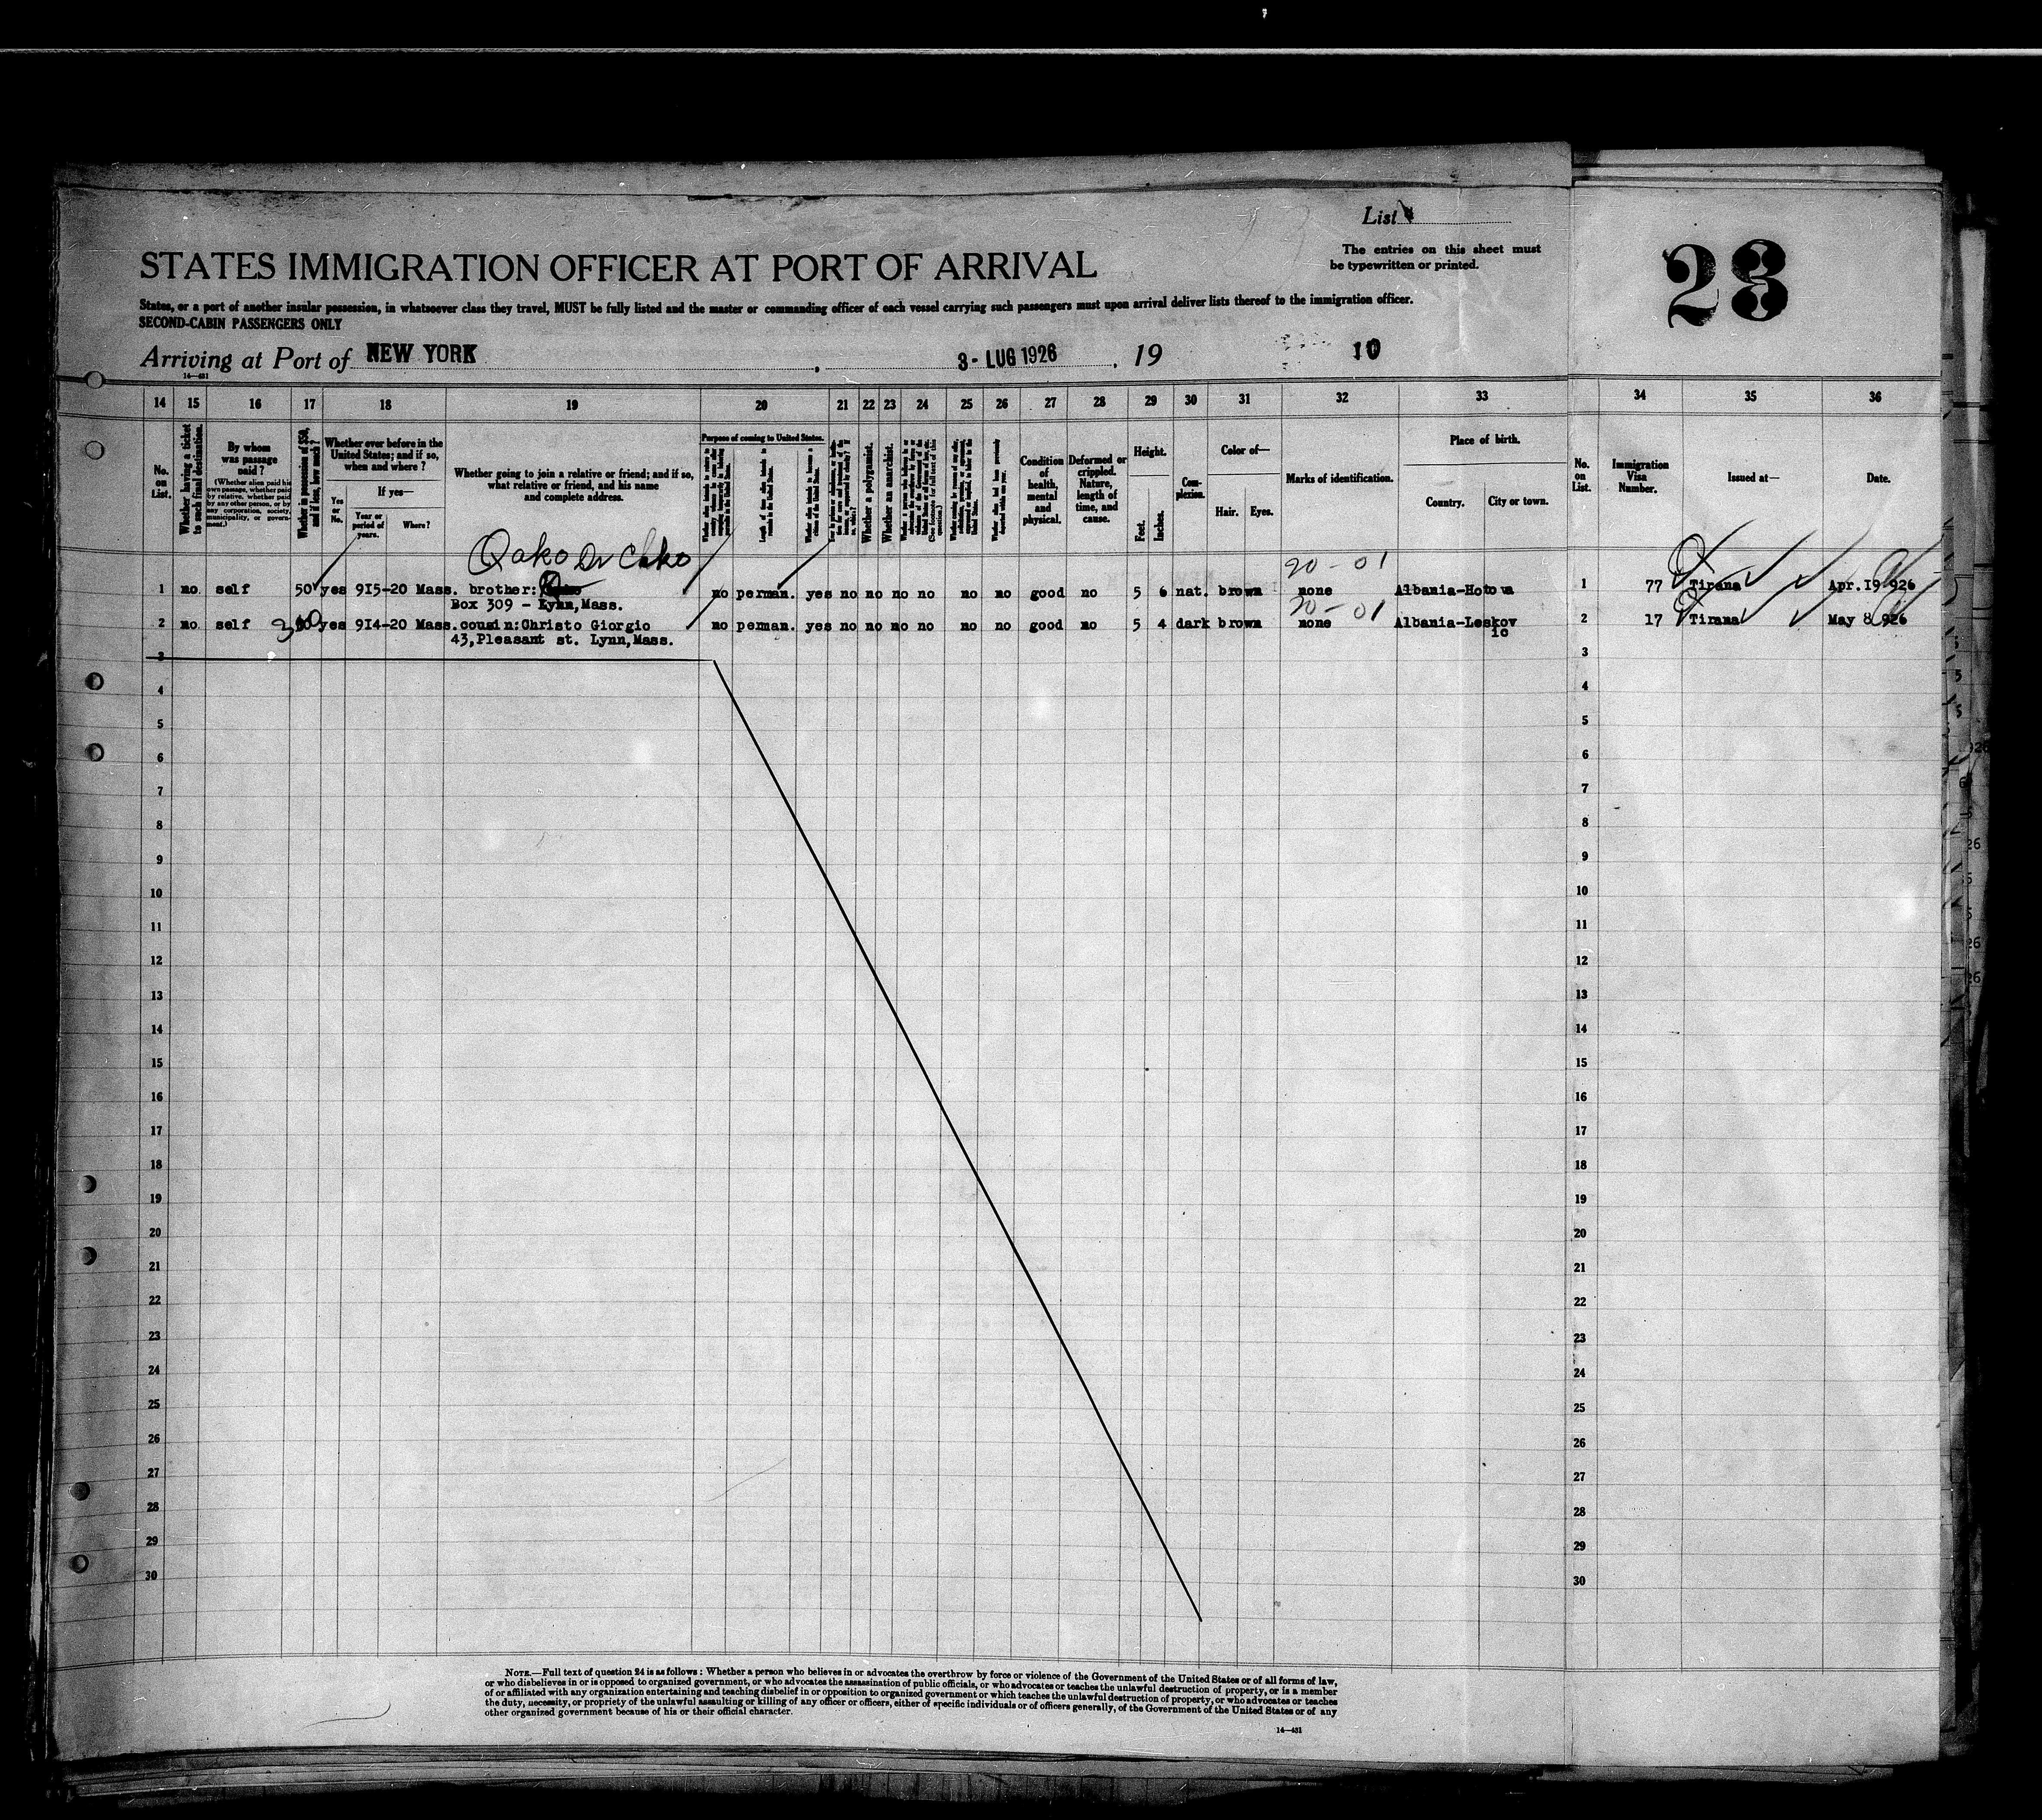 List
The entries on this sheet must
be typewritten or printed.
23
STATES IMMIGRATION OFFICER AT PORT OF ARRIVAL
States, or a port of another insular possession, in whatsoever class they travel, MUST be fully listed and the master or commanding officer of each vessel carrying such passengers must upon arrival deliver lists thereof to the immigration officer.
SECOND-CABIN PASSENGERS ONLY
Arriving at Port of NEW YORK, 3 - LUG 1926, 19 10
14—431
14 15 16 17 18 19 20 21 22 23 24 25 26 27 28 29 30 31 32 33 34 35 36
No. on List.
Whether having a ticket to such final destination.
By whom was passage paid?
(Whether alien paid his own passage, whether paid by relative, whether paid by any other person, or by any corporation, society, municipality, or government.)
Whether in possession of $50, and if less, how much?
Whether ever before in the United States; and if so, when and where?
Yes or No.
If yes—
Year or period of years.
Where?
Whether going to join a relative or friend; and if so, what relative or friend, and his name and complete address.
Purpose of coming to United States.
Whether a polygamist.
Whether an anarchist.
Condition of health, mental and physical.
Deformed or crippled. Nature, length of time, and cause.
Height.
Feet.
Inches.
Complexion.
Color of—
Hair.
Eyes.
Marks of identification.
Place of birth.
Country.
City or town.
No. on List.
Immigration Visa Number.
Issued at—
Date.
Qako Dr Chko
20-01
1 no self 50 yes 915-20 Mass. brother: no perman. yes no no no no no no good no 5 6 nat. brown none Albania-Hotova 1 77 Tirana Apr.19 926
Box 309 - Lynn,Mass.
20-01
2 no self yes 914-20 Mass. cousin:Christo Giorgio no perman. yes no no no no no no good no 5 4 dark brown none Albania-Leskov 2 17 Tirana May 8 926
43,Pleasant st. Lynn,Mass. ic
3 3
4 4
5 5
6 6
7 7
8 8
9 9
10 10
11 11
12 12
13 13
14 14
15 15
16 16
17 17
18 18
19 19
20 20
21 21
22 22
23 23
24 24
25 25
26 26
27 27
28 28
29 29
30 30
NOTE.—Full text of question 24 is as follows: Whether a person who believes in or advocates the overthrow by force or violence of the Government of the United States or of all forms of law,
or who disbelieves in or is opposed to organized government, or who advocates the assassination of public officials, or who advocates or teaches the unlawful destruction of property, or is a member
of or affiliated with any organization entertaining and teaching disbelief in or opposition to organized government or which teaches the unlawful destruction of property, or who advocates or teaches
the duty, necessity, or propriety of the unlawful assaulting or killing of any officer or officers, either of specific individuals or of officers generally, of the Government of the United States or of any
other organized government because of his or their official character.
14—431